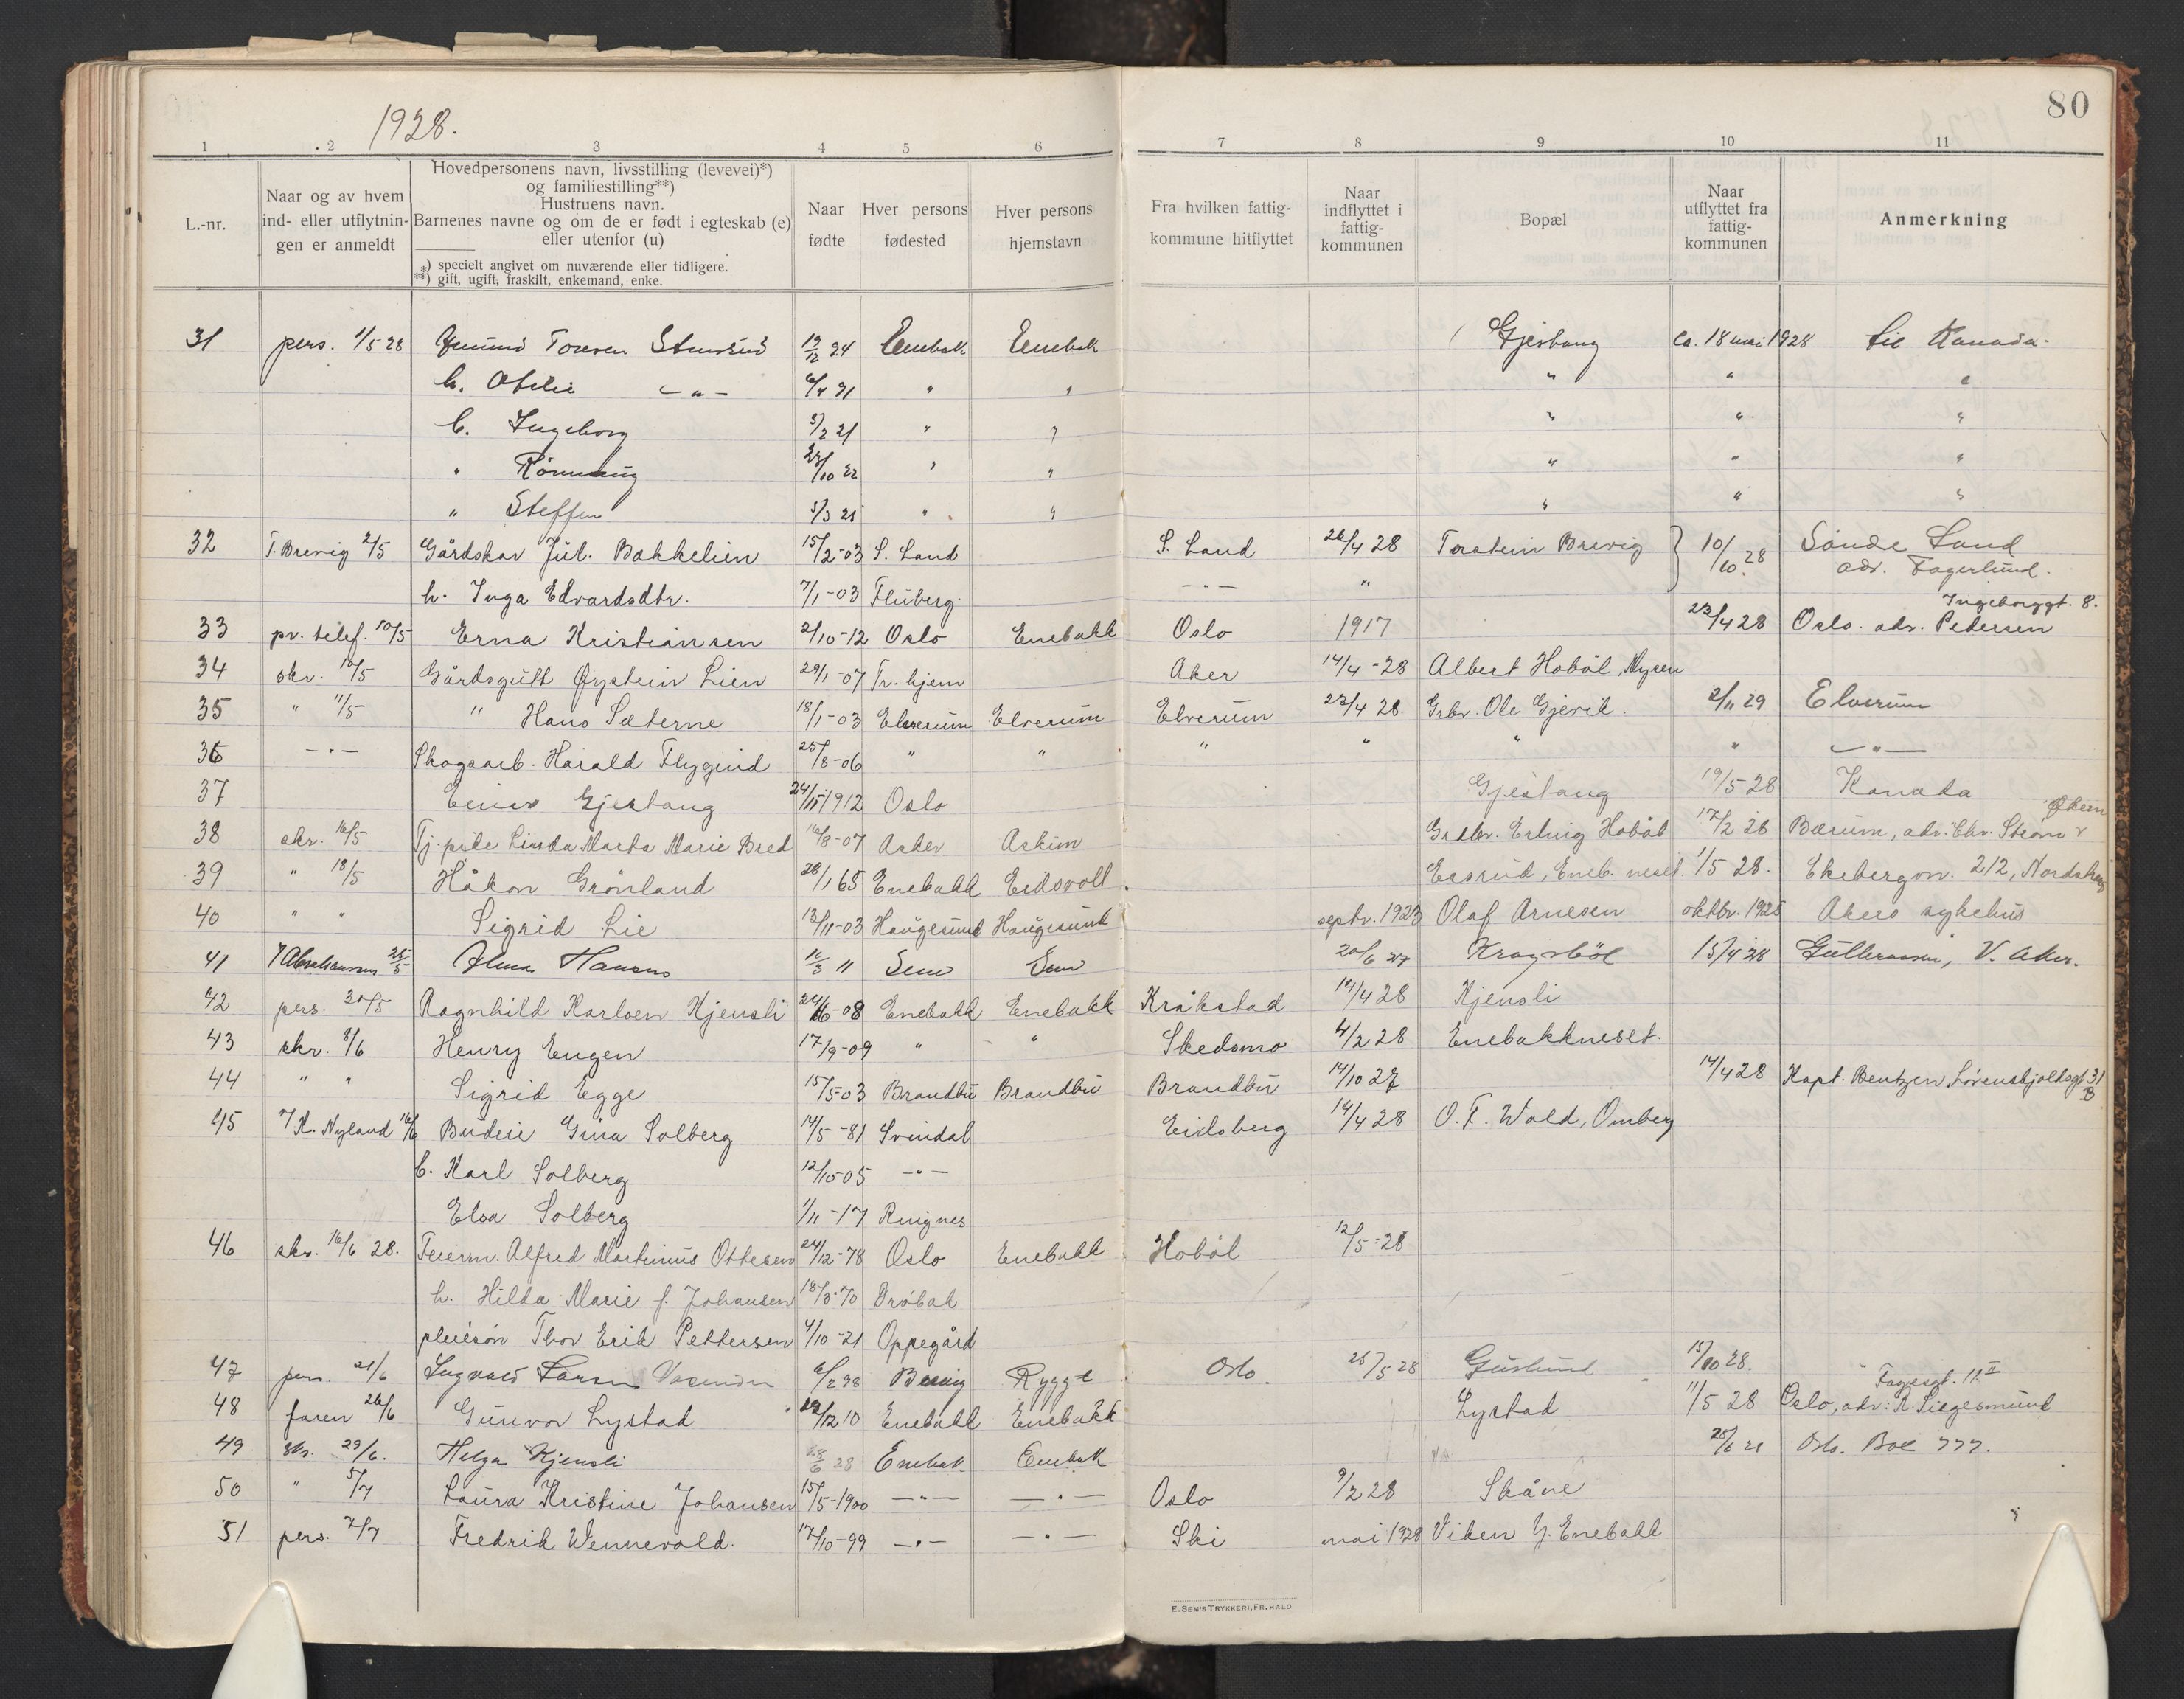 1928.
80
1 2 3 4 5 6 7 8 9 10 11
L.-nr.
Naar og av hvem ind- eller utflytningen er anmeldt
Hovedpersonens navn, livsstilling (levevei)*) og familiestilling**)
Hustruens navn.
Barnenes navne og om de er født i egteskab (e) eller utenfor (u)
*) specielt angivet om nuværende eller tidligere.
**) gift, ugift, fraskilt, enkemand, enke.
Naar fødte
Hver persons fødested
Hver persons hjemstavn
Fra hvilken fattigkommune hitflyttet
Naar indflyttet i fattigkommunen
Bopæl
Naar utflyttet fra fattigkommunen
Anmerkning
31 pers. 1/5 28 Stensrud Enebak Enebak Gjestang ca. 18 mai 1928 til Kanada.
h. Otelie - " - " " " " "
b. Ingeborg 3/2 21 " " " " "
" Rönnaug 10 22 " " " " "
" Steffen " " " " "
32 T. Brevig 2/5 Gårdskar Jul. Bakkelien 15/2-03 S. Land S. Land 26/4 28 Torstein Brevig 10/10 28 Söndre Land adr. Fagerlund.
h. Inga Edvardsdtr. 7/1-03 Fluberg - " - "
33 pr. telef. 10/5 Erna Kristiansen 2/10-12 Oslo Enebakk Oslo 1917 23/4 28 Oslo. adr. Petersen Ingeborggt. 8.
34 skr. 10/5 Gårdsgutt Øystein Lien 29/1-07 Tr. hjem Aker 14/4-28 Albert Hoböl, Mysen
35 " 11/5 " Hans Sæterne 18/1-03 Elverum Elverum Elverum 23/4 28 Grbr. Ole Gjevik. 2/11 29 Elverum
36 - " - Skogsarb. Harald Flygind 25/8-06 " " " " " " - " -
37 Einar Gjestang 24/11 1912 Oslo Gjestang 19/5-28 Kanada
38 skr. 16/5 Tj. pike Linda Marta Marie Bred 16/8-07 Asker Askim Grdbr. Erling Hoböl 17/2 28 Bærum, adr. Chr. Ström
39 " 18/5 Håkon Grönland 28/1 65 Enebakk Eidsvoll Eneb. neset. 1/5 28. Ekebergvn. 212, Nordstrand
40 " " Sigrid Lie 13/11-03 Haugesund Haugesund septr. 1923 Olaf Arnesen oktbr. 1925 Akers sykehus
41 Abrahamsen 25/5 Alma Hansen 11 Sem Sem 20/6 27 Kragsböl 15/4 28 V. Aker.
42 pers. 30/5 Ragnhild Karlsen Kjensli 24/6-08 Enebakk Enebakk Kråkstad 14/4 28 Kjensli
43 skr. 8/6 Henry Engen 17/9-09 " " Skedsmo 4/2 28 Enebakkneset.
44 " " Sigrid Egge 15/5-03 Brandbu Brandbu Brandbu 14/10 27 14/4 28 Kapt. Bentzen Lövenskjoldsgt 31 B
45 K. Nyland 16/6 Budeie Gina Solberg 14/5-81 Svindal Eidsberg 14/4 28 O. F. Wold, Omberg
b. Karl Solberg 12/10-05 - " -
Elsa Solberg 1/11-17 Ringnes
46 skr. 16/6 28. Feierm. Alfred Martinius Ottesen 24/12-78 Oslo Enebakk Hoböl 12/5-28
h. Hilda Marie f. Johansen 18/3-70 Dröbak
pleiesön Thor Erik Pettersen 4/10-21 Oppegård
47 pers. 21/6 Ingvald Larsen Rygge Oslo. 25/5 28 15/10 28.
48 faren 26/6 Gunvor Lystad 12 10 Enebakk Enebakk Lystad 11/5 28 Oslo, adr: R. Siegesmund Fagesgt. 11 II
49 skr. 29/6. Helga Kjensli Enebak Enebak Oslo. Box 777.
50 " 5/7 Laura Kristine Johansen 15/5-1900 - " - - " - Oslo 9/2 28 Skåne
51 pers. 7/7 Fredrik Wennevold. 17/10-99 - " - - " - Ski mai 1928 Viken Y. Enebakk
E. SEM'S TRYKKERI, FR.HALD